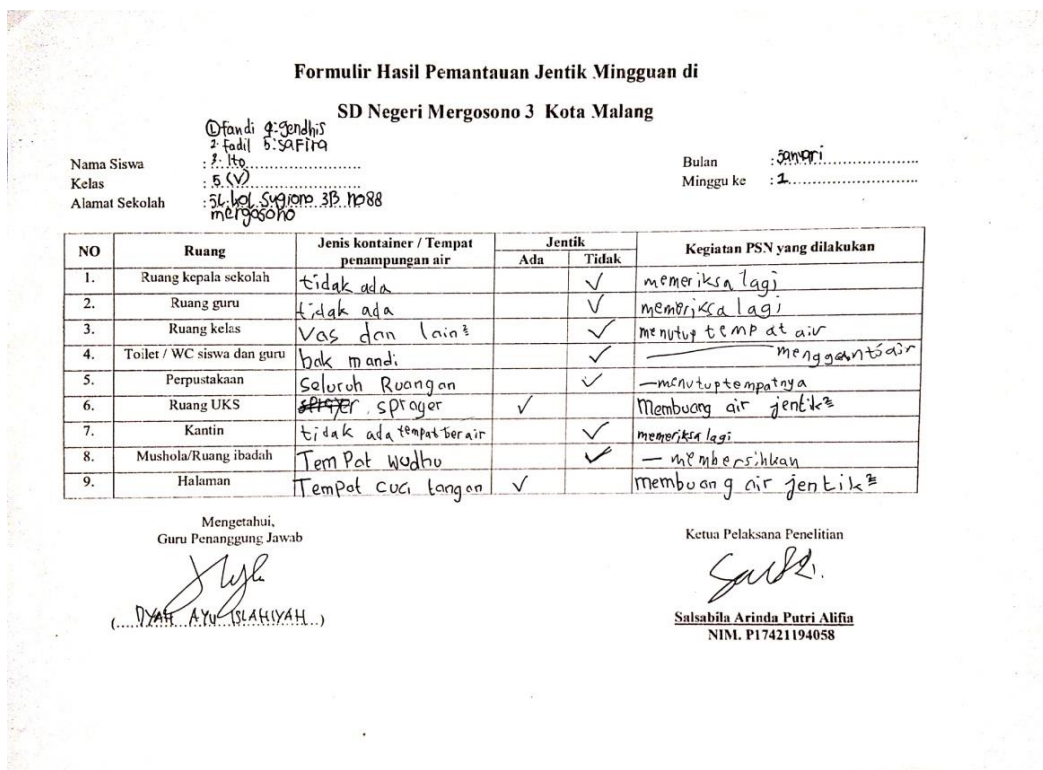 Formulir Hasil Pemantauan Jentik Mingguan di
SD Negeri Mergosono 3 Kota Malang
1 fandi 4. gendhis
2. fadil 5. safira
Nama Siswa : 3. Ito
Kelas : 5 (V)
Alamat Sekolah : JL. kol. Sugiono 3B no 88
mergosono
Bulan : Januari
Minggu ke : 1
NO Ruang Jenis kontainer / Tempat penampungan air Jentik Kegiatan PSN yang dilakukan
Ada Tidak
1. Ruang kepala sekolah tidak ada ✓ memeriksa lagi
2. Ruang guru tidak ada ✓ memeriksa lagi
3. Ruang kelas Vas dan lain² ✓ menutup tempat air
4. Toilet / WC siswa dan guru bak mandi ✓ mengganti air
5. Perpustakaan Seluruh Ruangan ✓ — menutup tempatnya
6. Ruang UKS sprayer ✓ Membuang air jentik²
7. Kantin tidak ada tempat berair ✓ memeriksa lagi
8. Mushola/Ruang ibadah Tempat wudhu ✓ — membersihkan
9. Halaman Tempat cuci tangan ✓ membuang air jentik²
Mengetahui,
Guru Penanggung Jawab
(DYAH AYU ISLAHIYAH)
Ketua Pelaksana Penelitian
Salsabila Arinda Putri Alifia
NIM. P17421194058